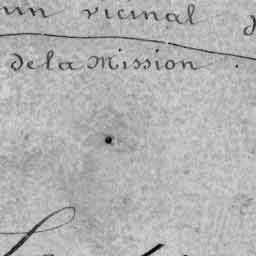 un vicinal d
de la Mission .